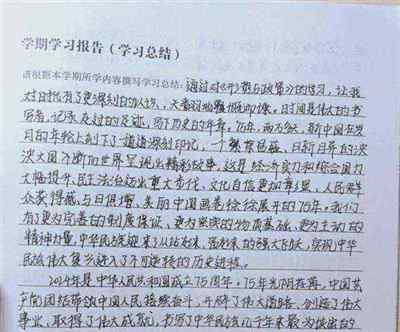 学期学习报告（学习总结）
请根据本学期所学内容撰写学习总结：通过对《形势与政策》的学习，让我
对时代有了更深刻的认识，天番羽地覆慨而慷。时间是伟大的书
写者，记录走过的足迹，历史的年轮，75年，而今，新中国在岁
月的年轮上刻下了一道道深刻印记，一个繁荣昌盛、日新月异的泱
泱大国不断向世界呈现出精彩故事，这是经济实力和综合国力
大幅提升、民主法治迈出重大步伐、文化自信更加彰显，人民群
众获得感与日俱增，美丽中国画卷徐徐展开的75年。我们
有了更为完善的制度保证，更为坚实的物质基础，更为主动的
精神力量，中华民族迎来了从站起来、强起来的伟大飞跃，实现中华
民族伟大复兴进入了不可逆转的历史进程。
2024年是中华人民共和国成立75周年。75年光阴荏苒，中国共
产党团结带领中国人民接续奋斗，开辟了伟大道路，创造了伟大
事业，取得了伟大成就，书写了中华民族几千年来最为恢宏的